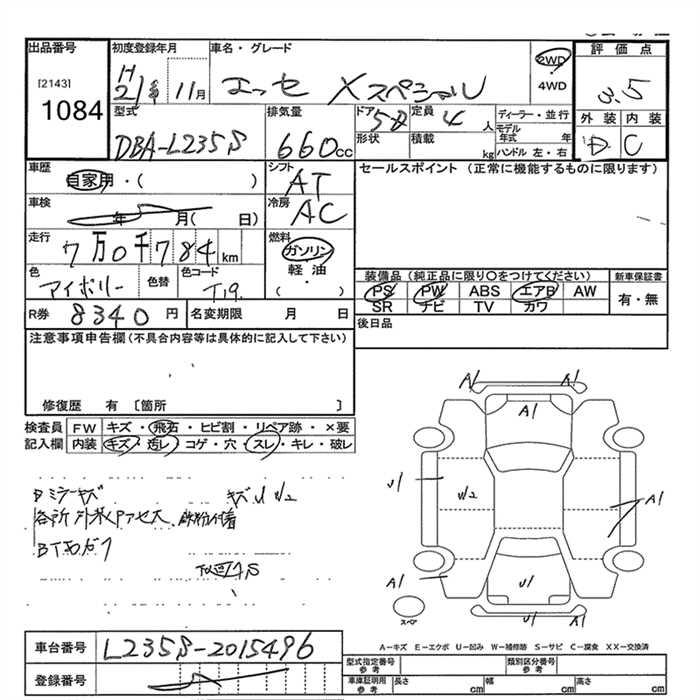 出品番号 初度登録年月 車名・グレード 評価点
[2143] H21年 11月 エッセ Xスペシャル 2WD 4WD 3.5
1084
型式 排気量 ドア 定員 ディーラー・並行 外装 内装
DBA-L235S 660cc 5D 4人 モデル年式 年 D C
形状 積載 kg ハンドル 左・右
車歴 シフト セールスポイント (正常に機能するものに限ります)
自家用・( ) AT
車検 冷房
年 月( 日) AC
走行 燃料
7万0千784km ガソリン
色 色替 色コード 軽油 装備品 (純正品に限り○をつけてください) 新車保証書
アイボリー T19 ( ) PS PW ABS エアB AW 有・無
SR ナビ TV カワ
R券 8340円 名変期限 月 日 後日品
注意事項申告欄(不具合内容等は具体的に記入して下さい)
修復歴 有 〔箇所 〕
検査員 FW キズ・飛石・ヒビ割・リペア跡・×要
記入欄 内装 キズ・汚レ・コゲ・穴・スレ・キレ・破レ
A1 A1
A1
U1 U/2 A1
A1 U1
スペア
キズU U/2
各所 鉄粉付着
A-キズ E-エクボ U-凹み W-補修跡 S-サビ C-腐食 XX-交換済
車台番号 L235S-2015496
登録番号
型式指定番号 参考 類別区分番号 参考
車庫証明用 参考 長さ cm 幅 cm 高さ cm